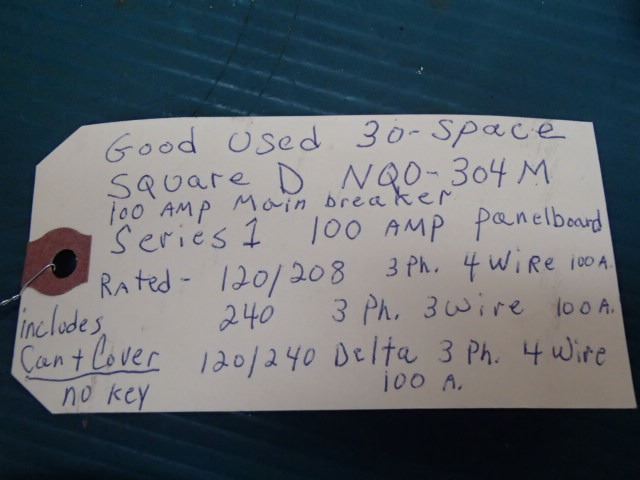 Good Used 30-Space
Square D NQO-304M
100 AMP Main breaker
Series 1 100 AMP panelboard
Rated - 120/208 3 Ph. 4 Wire 100 A.
240 3 Ph. 3 Wire 100 A.
includes
Can + Cover 120/240 Delta 3 Ph. 4 Wire
100 A.
no key